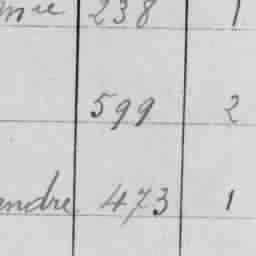 238 1
599 2
andre 473 1